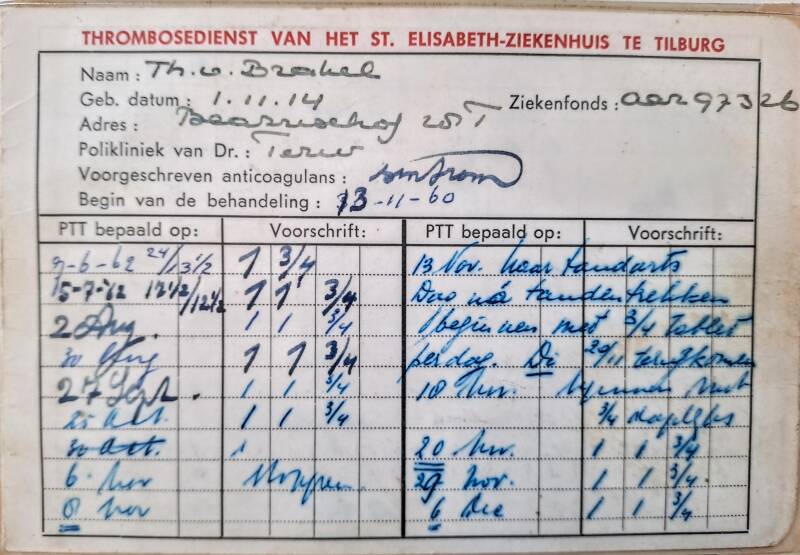 THROMBOSEDIENST VAN HET ST. ELISABETH-ZIEKENHUIS TE TILBURG
Naam : Th. v. Brakel
Geb. datum : 1.11.14
Ziekenfonds :
Adres :
Polikliniek van Dr. :
Voorgeschreven anticoagulans : sintrom
Begin van de behandeling : 13-11-60
PTT bepaald op: Voorschrift: PTT bepaald op: Voorschrift:
9-6-62 1 3/4
15-7-'62 12 1/2 / 12 1/2 1 1 3/4
2 Aug. 1 1 3/4
30 Aug 1 1 3/4
27 Sept. 1 1 3/4
25 Oct. 1 1 3/4
30 Oct. 1
6 Nov Stoppen
8 Nov
13 Nov. naar tandarts
Dag ná tandentrekken
beginnen met 3/4 tablet
per dag. Di 20/11 terugkomen
18 Nov.
3/4 dagelijks
20 Nov. 1 1 3/4
29 Nov. 1 1 3/4
6 Dec 1 1 3/4